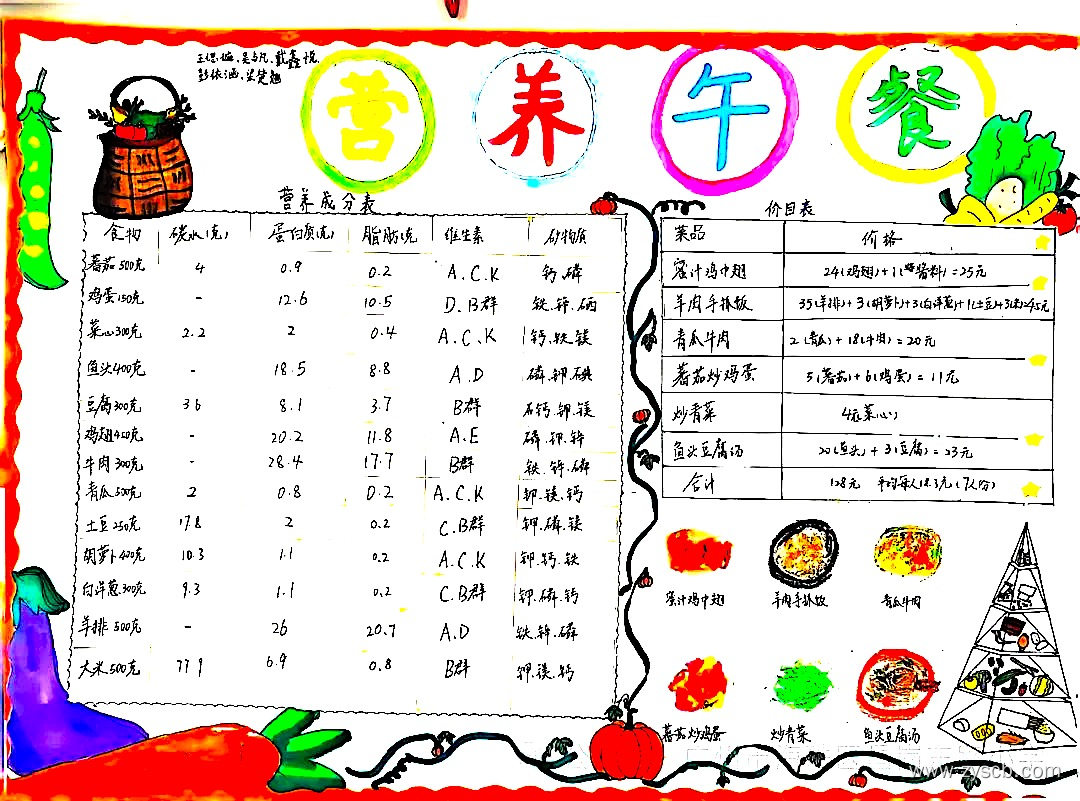 营养午餐
营养成分表
食物 碳水(克) 蛋白质(克) 脂肪(克 维生素 矿物质
蕃茄500克 4 0.9 0.2 A.C.K 钙.磷
鸡蛋150克 - 12.6 10.5 D.B群 铁.锌.硒
菜心300克 2.2 2 0.4 A.C.K 钙.铁.镁
鱼头400克 - 18.5 8.8 A.D 磷.钾.碘
豆腐300克 36 8.1 3.7 B群 钙.钾.镁
鸡翅450克 - 20.2 11.8 A.E 磷.钾.锌
牛肉300克 - 28.4 17.7 B群 铁.锌.磷
青瓜500克 2 0.8 0.2 A.C.K 钾.镁.钙
土豆250克 17.8 2 0.2 C.B群 钾.磷.镁
胡萝卜400克 10.3 1.1 0.2 A.C.K 钾.钙.铁
白洋葱300克 9.3 1.1 0.2 C.B群 钾.磷.钙
羊排500克 - 26 20.7 A.D 铁.锌.磷
大米500克 779 6.9 0.8 B群 钾.镁.钙
价目表
菜品 价格
蜜汁鸡中翅 24(鸡翅)+1(酱料)=25元
羊肉手抓饭 35(羊排)+3(胡萝卜)+3(白洋葱)+1(土豆)+3(米)=45元
青瓜牛肉 2(青瓜)+18(牛肉)=20元
蕃茄炒鸡蛋 5(蕃茄)+6(鸡蛋)=11元
炒青菜 4元(菜心)
鱼头豆腐汤 20(鱼头)+3(豆腐)=23元
合计 128元 平均每人18.3元(7人份)
蜜汁鸡中翅 羊肉手抓饭 青瓜牛肉
蕃茄炒鸡蛋 炒青菜 鱼头豆腐汤
www.zyscb.com